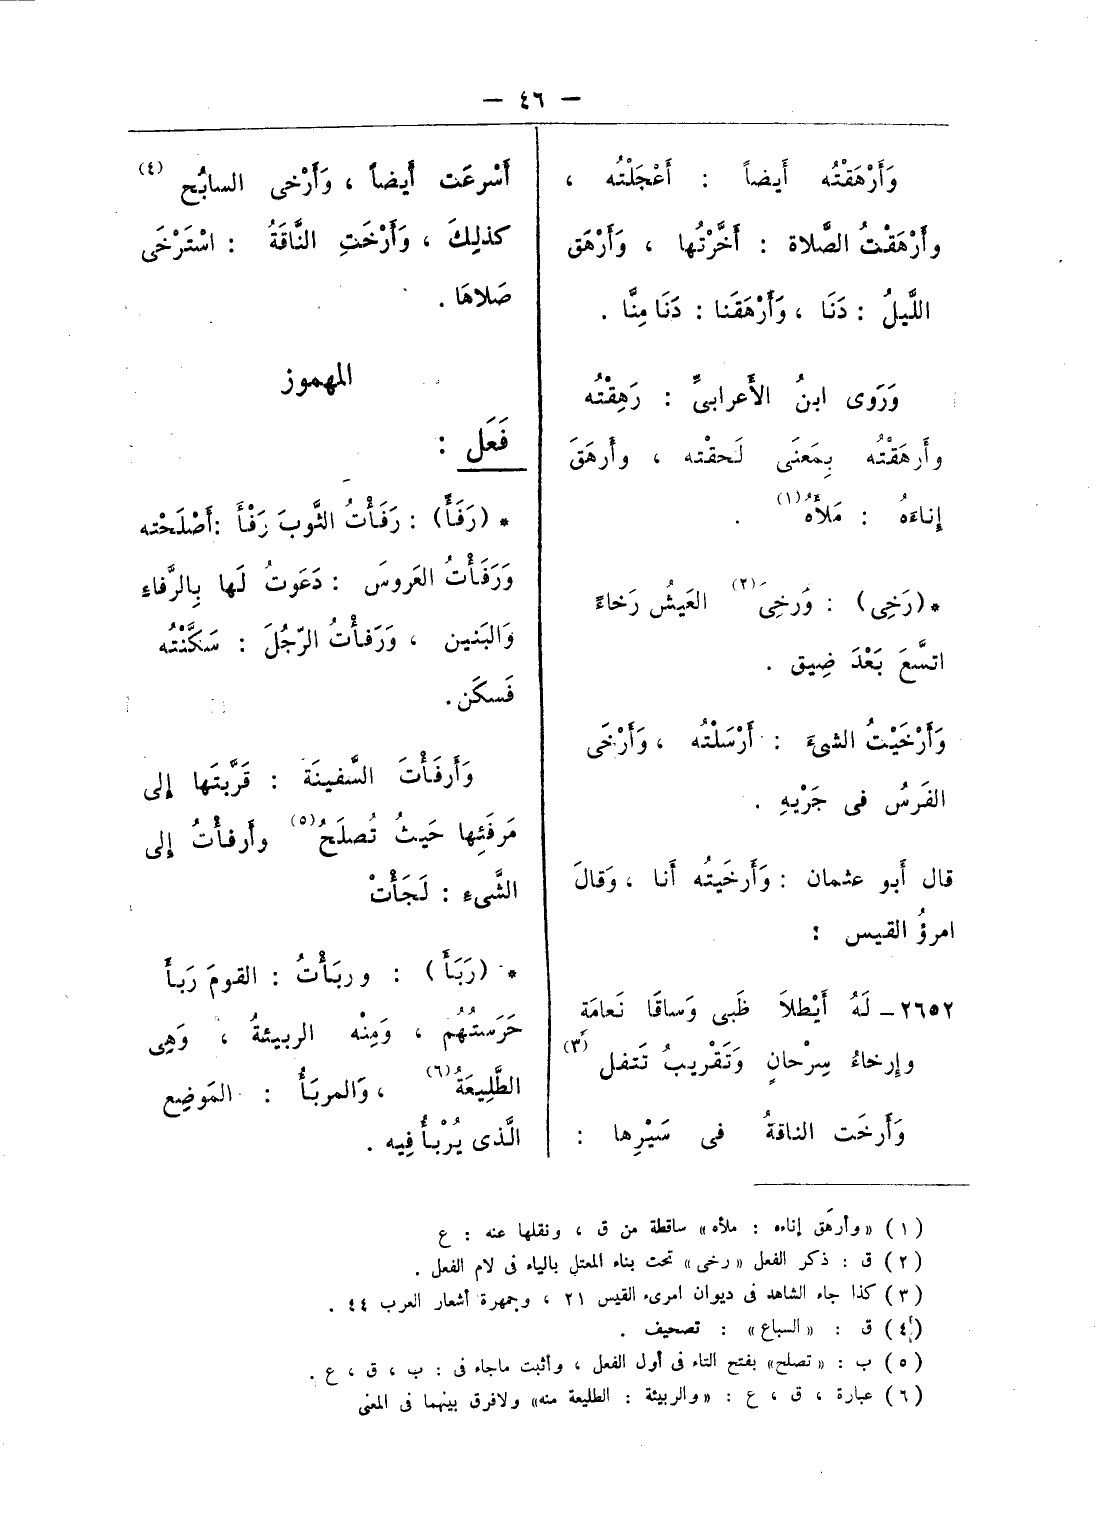 — ٤٦ —
وَأَرْهَقْتُه أَيضاً : أَعْجَلْتُه ،
وأَرْهَقْتُ الصَّلاة : أَخَّرْتُها ، وَأَرْهَق
اللَّيلُ : دَنَا ، وَأَرْهَقَنا : دَنَا مِنَّا .
وَرَوى ابنُ الأَعرابىِّ : رَهِقْتُه
وأَرهَقْتُه بِمَعنَى لَحقْته ، وأَرهَقَ
إِناءَهُ : مَلأَهُ(١) .
*(رَخِى) : وَرخِىَ(٢) العَيشُ رَخاءً
اتسَّعَ بَعْدَ ضِيق .
وَأَرْخَيْتُ الشىءَ : أَرْسَلْتُه ، وَأَرْخَى
الفَرسُ فى جَرْيِهِ .
قال أَبو عثمان : وَأَرخَيتُه أَنا ، وَقالَ
امرؤُ القيس :
٢٦٥٢ – لَهُ أَيْطلاَ ظَبى وَساقَا نَعامَةٍ
وإِرخاءُ سِرْحانٍ وَتَقْرِيبُ تَتفل (٣)
وَأَرخَت الناقةُ فى سَيْرِها :
أَسْرعَت أَيضاً ، وَأَرْخى السابُح (٤)
كذلِكَ ، وَأَرْخَتِ النَّاقَةُ : اسْتَرْخَى
صَلاهَا .
المهموز
فَعَل :
* (رَفَأَ) : رَفَأْتُ الثَّوبَ رَفْأً :أَصْلَحْته
وَرَفَأْتُ العَروسَ : دَعَوتُ لَها بِالرَّفاءِ
وَالبَنين ، وَرَفأْتُ الرّجُلَ : سَكَّنْتُه
فَسكَن .
وَأَرفَأْتَ السَّفينَة : قَرَّبتَها إِلى
مَرفَئِها حَيثُ تُصلَحُ(٥) وأَرفأْتُ إِلى
الشَّىءِ : لَجَأْتْ
* (رَبَأَ) : وربَأْتُ : القومَ رَبأً
حَرَستُهُم ، وَمِنْه الربيئةُ ، وَهِى
الطَّلِيعَةُ(٦) ، وَالمربَأُ : المَوضِع
الَّذى يُرْبأُ فِيه .
(١) «وأرهَق إناءه : ملأه» ساقطة من ق ، ونقلها عنه : ع
(٢) ق : ذكر الفعل «رخى» تحت بناء المعتل بالياء فى لام الفعل .
(٣) كذا جاء الشاهد فى ديوان امرىء القيس ٢١ ، وجمهرة أشعار العرب ٤٤ .
(٤) ق : «السباع» : تصحيف .
(٥) ب : «تصلح» بفتح التاء فى أول الفعل ، وأثبت ماجاء فى : ب ، ق ، ع .
(٦) عبارة ، ق ، ع : «والربيئة : الطليعة منه» ولافرق بينهما فى المعنى